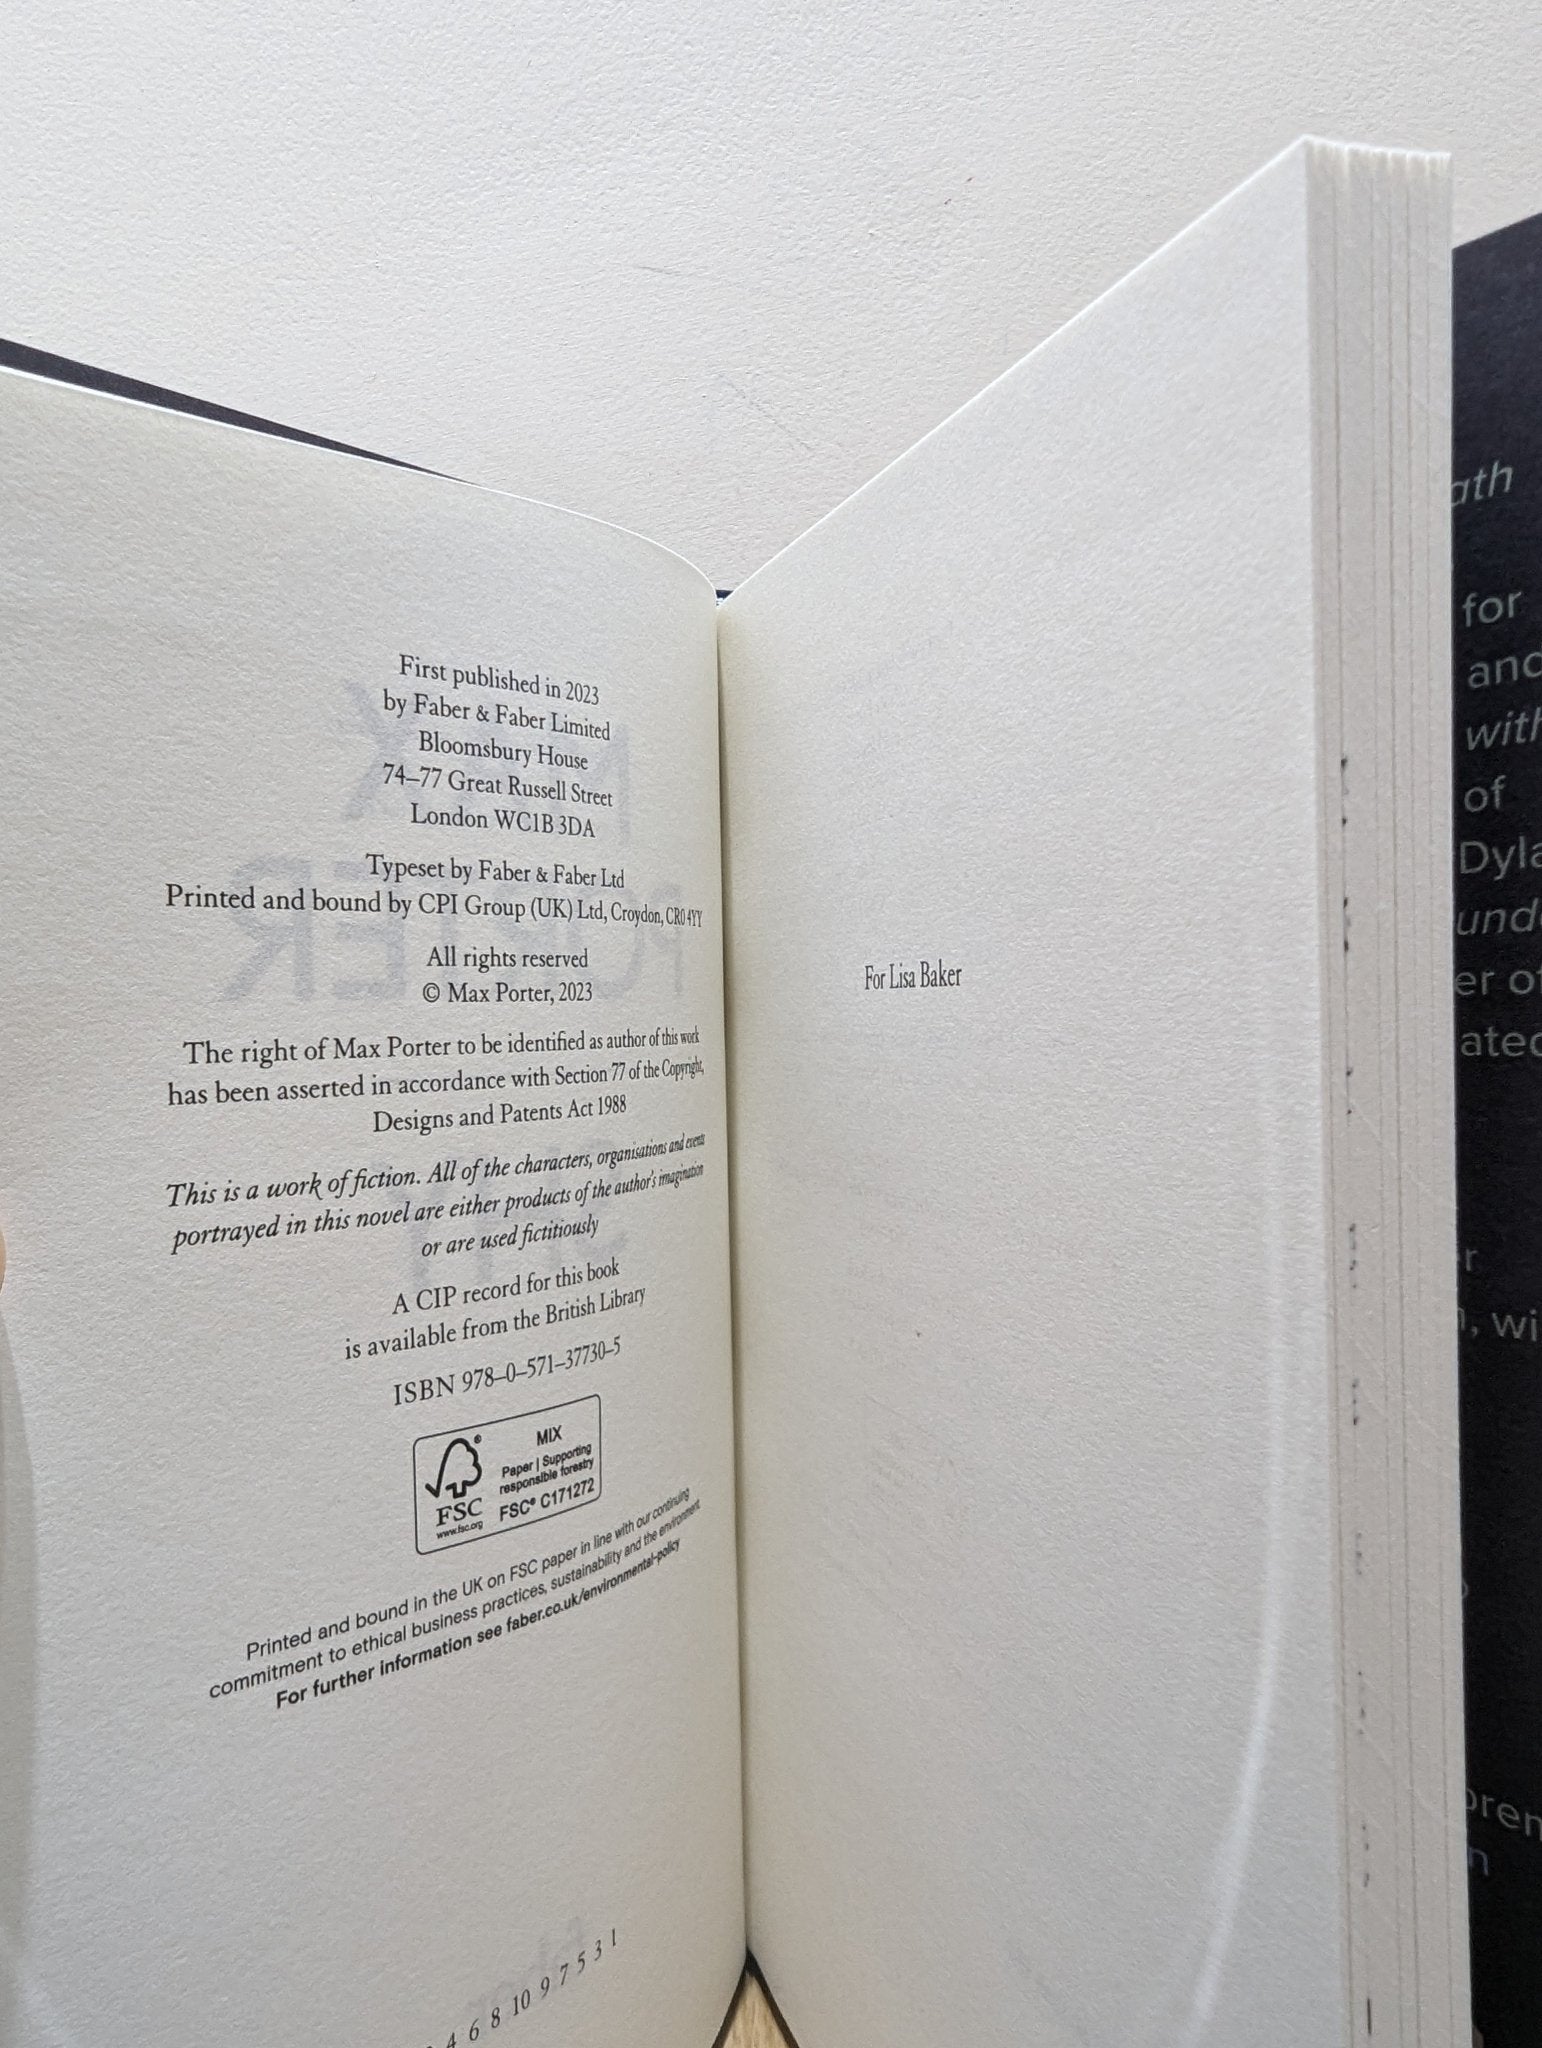 First published in 2023
by Faber & Faber Limited
Bloomsbury House
74–77 Great Russell Street
London WC1B 3DA
Typeset by Faber & Faber Ltd
Printed and bound by CPI Group (UK) Ltd, Croydon, CR0 4YY
All rights reserved
© Max Porter, 2023
The right of Max Porter to be identified as author of this work
has been asserted in accordance with Section 77 of the Copyright,
Designs and Patents Act 1988
This is a work of fiction. All of the characters, organisations and events
portrayed in this novel are either products of the author's imagination
or are used fictitiously
A CIP record for this book
is available from the British Library
ISBN 978–0–571–37730–5
MIX
Paper | Supporting
responsible forestry
FSC® C171272
FSC
www.fsc.org
Printed and bound in the UK on FSC paper in line with our continuing
commitment to ethical business practices, sustainability and the environment
For further information see faber.co.uk/environmental-policy
4 6 8 10 9 7 5 3 1
For Lisa Baker
for
of